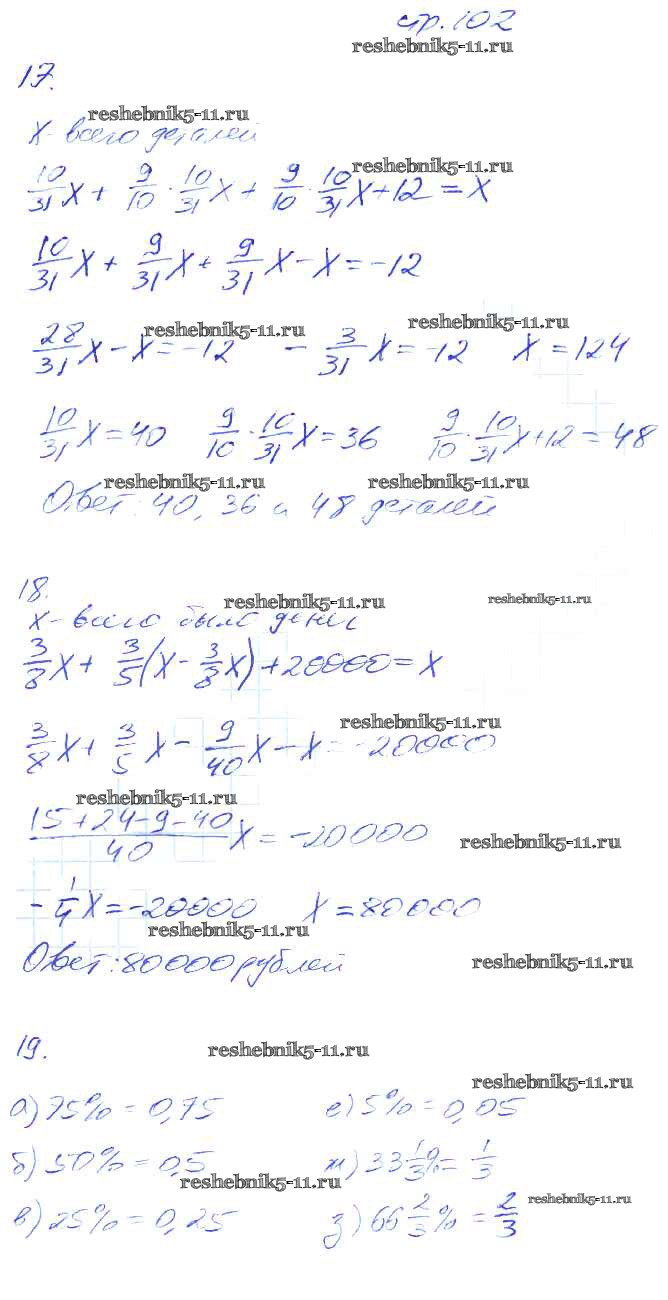 стр. 102
reshebnik5-11.ru
17.
reshebnik5-11.ru
х - всего деталей
reshebnik5-11.ru
10/31 х + 9/10 · 10/31 х + 9/10 · 10/31 х + 12 = х
10/31 х + 9/31 х + 9/31 х - х = -12
reshebnik5-11.ru reshebnik5-11.ru
28/31 х - х = -12 - 3/31 х = -12 х = 124
10/31 х = 40 9/10 · 10/31 х = 36 9/10 · 10/31 х + 12 = 48
reshebnik5-11.ru reshebnik5-11.ru
Ответ: 40, 36 и 48 деталей
18. reshebnik5-11.ru reshebnik5-11.ru
х - всего было денег
3/8 х + 3/5 (х - 3/8 х) + 20000 = х
reshebnik5-11.ru
3/8 х + 3/5 х - 9/40 х - х = -20000
reshebnik5-11.ru
(15+24-9-40)/40 х = -20000 reshebnik5-11.ru
- 1/4 х = -20000 х = 80000
reshebnik5-11.ru
Ответ: 80000 рублей reshebnik5-11.ru
19. reshebnik5-11.ru
reshebnik5-11.ru
а) 75% = 0,75 е) 5% = 0,05
б) 50% = 0,5 ж) 33 1/3 % = 1/3
reshebnik5-11.ru
в) 25% = 0,25 з) 66 2/3 % = 2/3 reshebnik5-11.ru